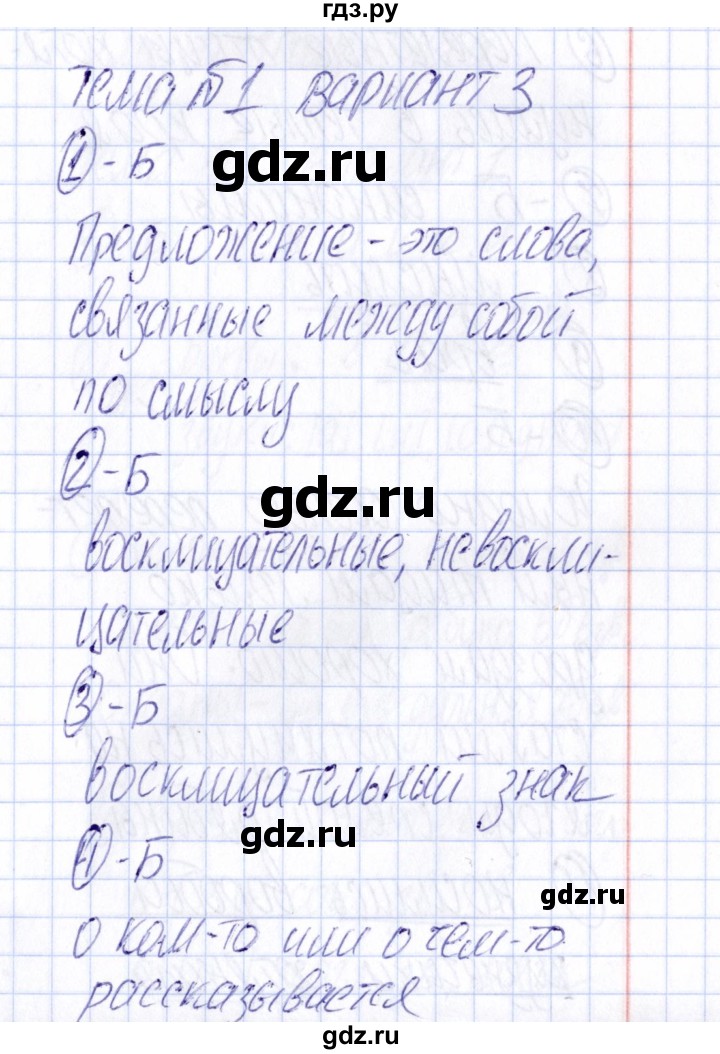 гдз.ру
Тема №1 Вариант 3
1 - Б
gdz.ru
Предложение - это слова,
связанные между собой
по смыслу
2 - Б
gdz.ru
восклицательные, невоскли-
цательные
3 - Б
восклицательный знак
gdz.ru
4 - Б
gdz.ru
о ком-то или о чем-то
рассказывается
gdz.ru